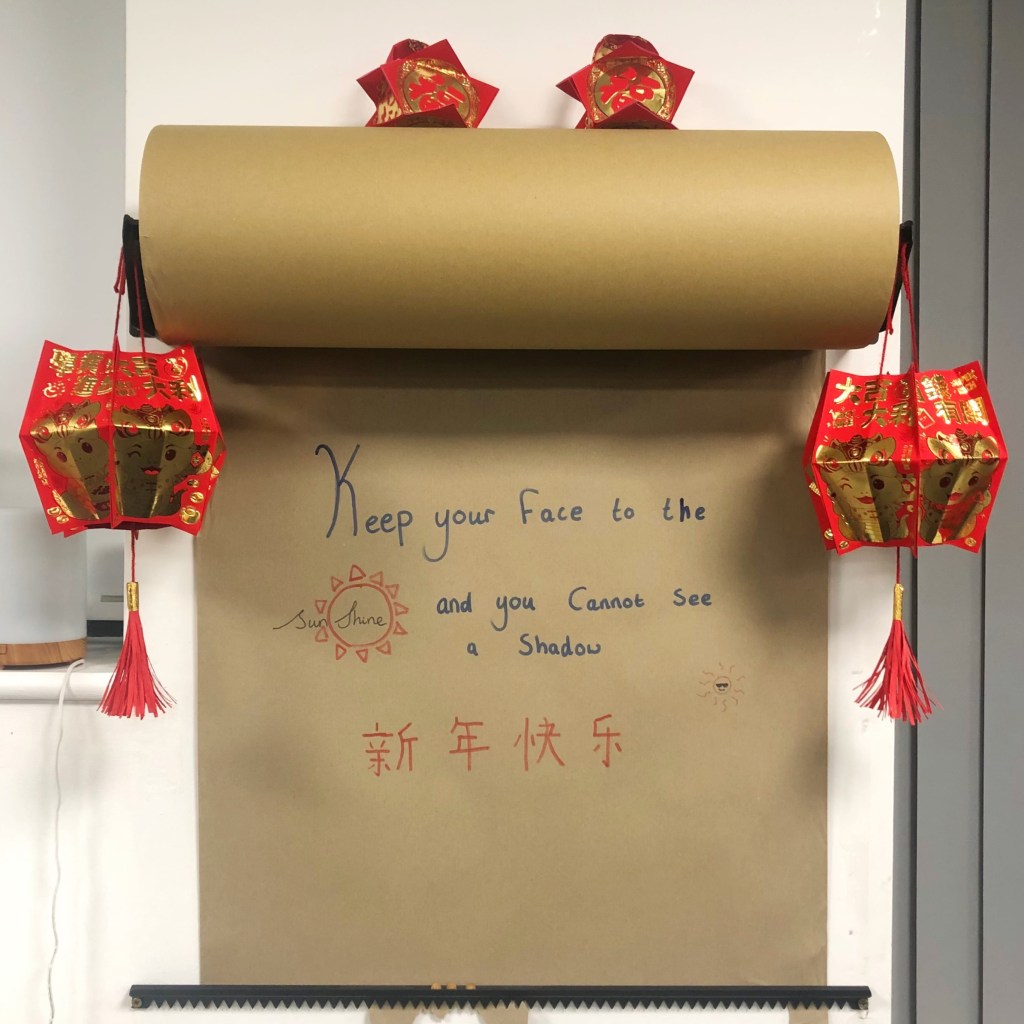 福
福
大吉
大利
大吉
大利
Keep your Face to the
Sunshine and you Cannot See
a Shadow
新年快乐